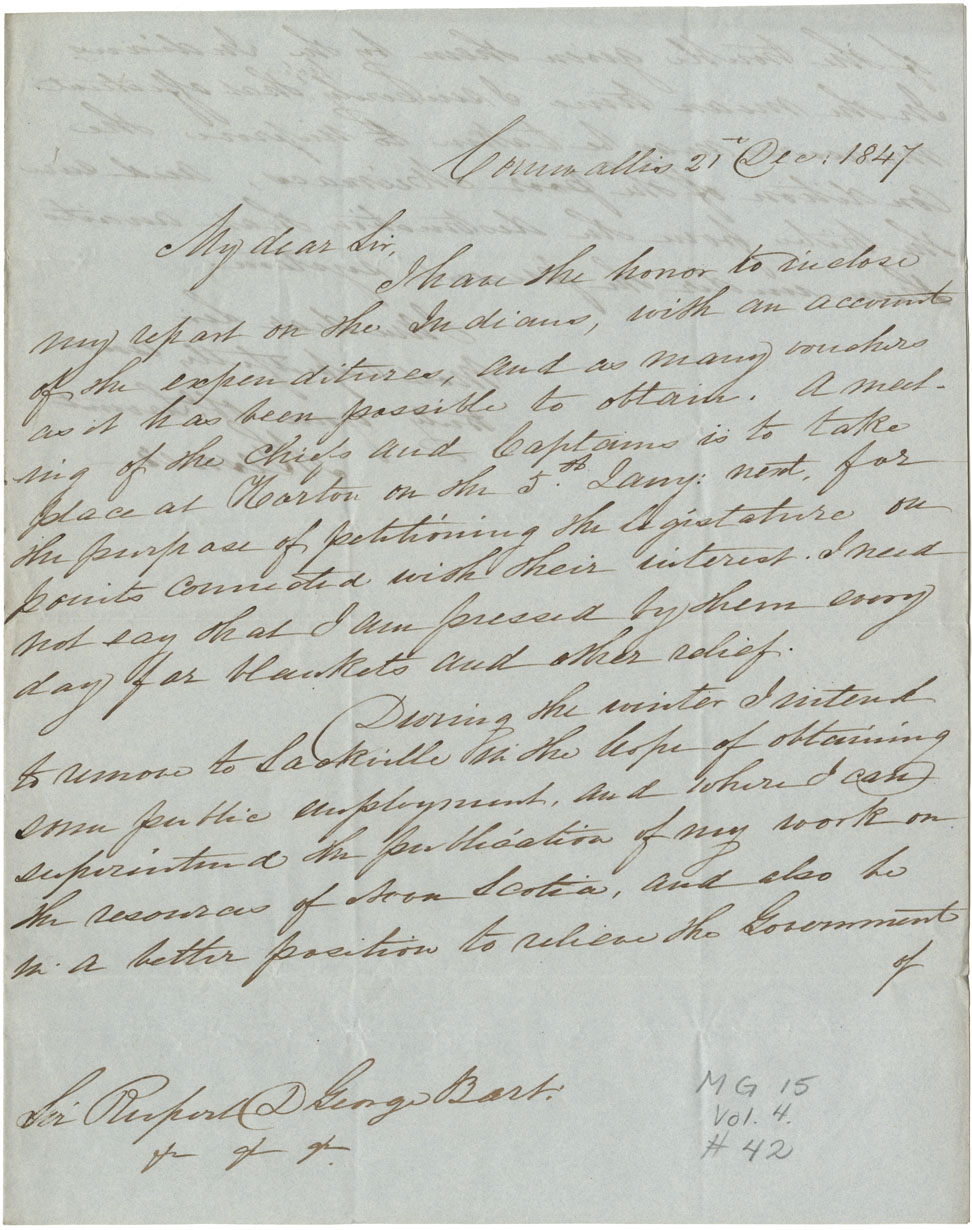 Cornwallis 21st Dec: 1847
My dear Sir,
I have the honor to inclose
my report on the Indians, with an account
of the expenditures, and as many vouchers
as it has been possible to obtain. A meet-
ing of the Chiefs and Captains is to take
place at Horton on the 5th Jany: next, for
the purpose of petitioning the legislature on
points connected with their interest. I need
not say that I am pressed by them every
day for blankets and other relief.
During the winter I intend
to remove to Sackville in the hope of obtaining
some public employment, and where I can
superintend the publication of my work on
the resources of Nova Scotia, and also be
in a better position to relieve the Government
of
Sir Rupert D George Bart.
MG 15
Vol. 4.
# 42